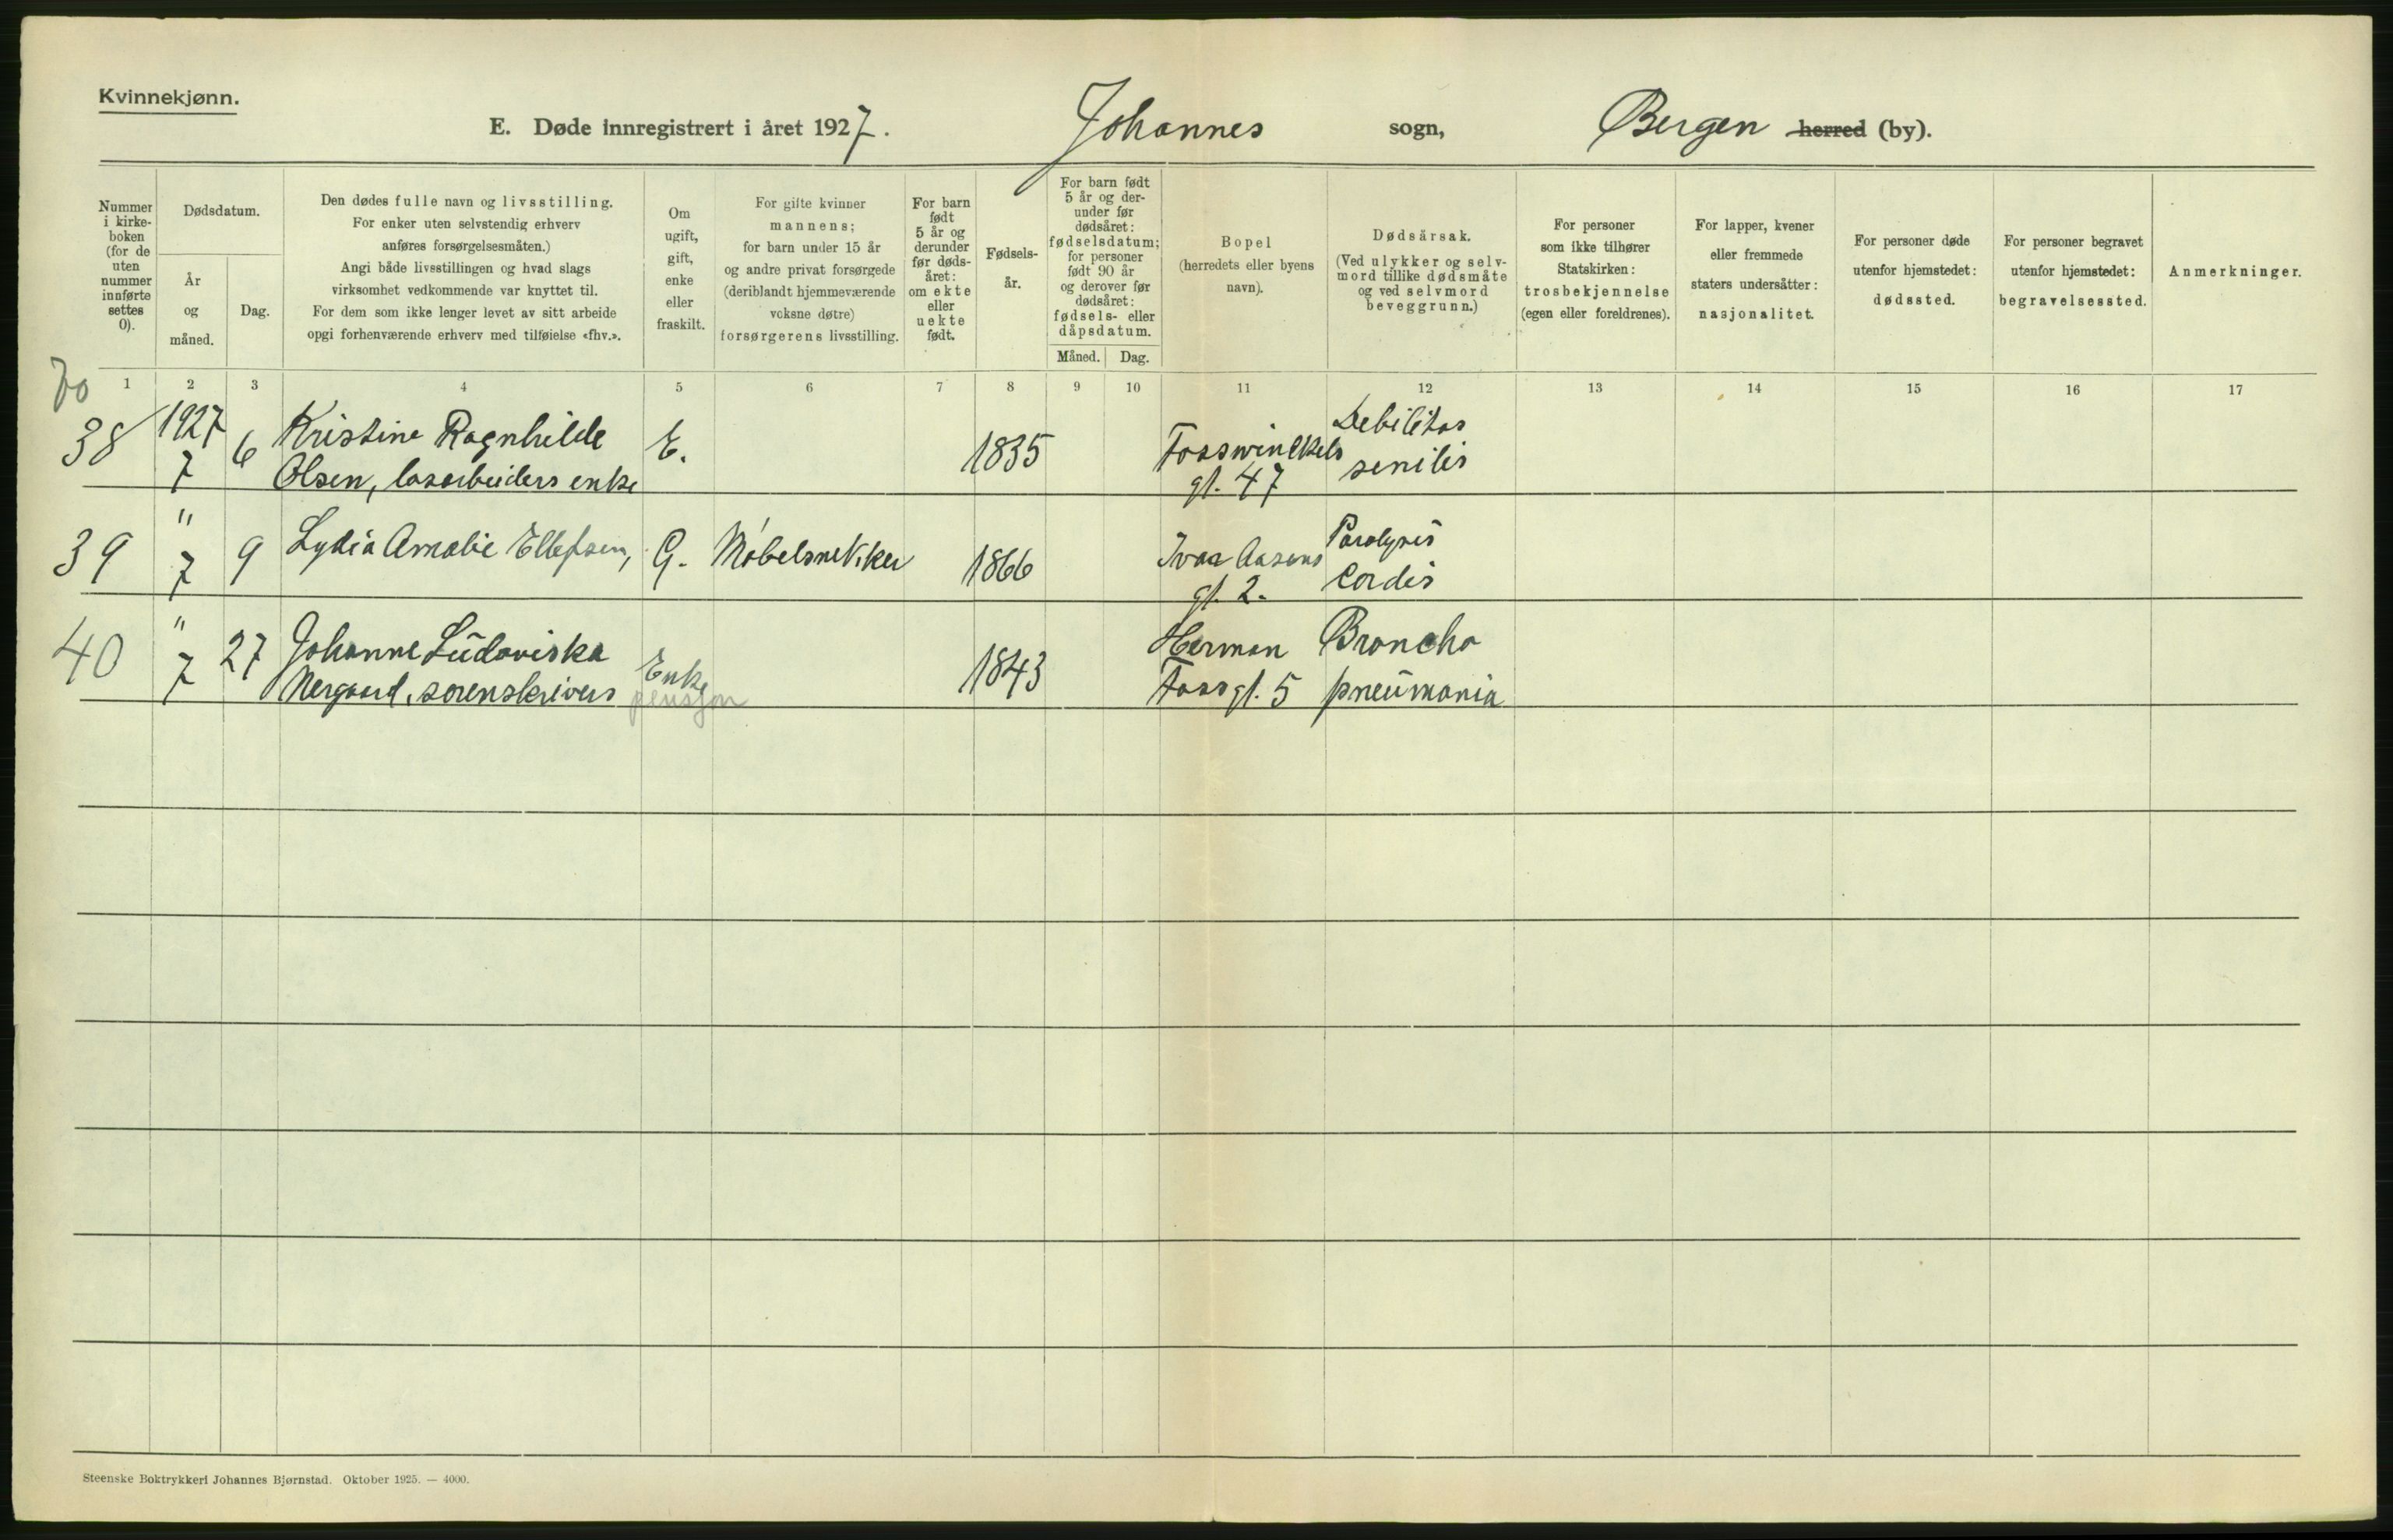 Kvinnekjønn.
E. Døde innregistrert i året 1927. Johannes sogn, Bergen herred (by).
Nummer i kirke-boken (for de uten nummer innførte settes 0).
Dødsdatum.
År og måned.
Dag.
Den dødes fulle navn og livsstilling.
For enker uten selvstendig erhverv
anføres forsørgelsesmåten.)
Angi både livsstillingen og hvad slags
virksomhet vedkommende var knyttet til.
For dem som ikke lenger levet av sitt arbeide
opgi forhenværende erhverv med tilføielse «fhv.».
Om
ugift,
gift,
enke
eller
fraskilt.
For gifte kvinner
mannens;
for barn under 15 år
og andre privat forsørgede
(deriblandt hjemmeværende
voksne døtre)
forsørgerens livsstilling.
For barn
født
5 år og
derunder
før døds-
året:
om ekte
eller
uekte
født.
Fødsels-
år.
For barn født
5 år og der-
under før
dødsåret:
fødselsdatum;
for personer
født 90 år
og derover før
dødsåret:
fødsels- eller
dåpsdatum.
Måned. Dag.
Bopel
(herredets eller byens
navn).
Dødsårsak.
(Ved ulykker og selv-
mord tillike dødsmåte
og ved selvmord
beveggrunn.)
For personer
som ikke tilhører
Statskirken:
trosbekjennelse
(egen eller foreldrenes).
For lapper, kvener
eller fremmede
staters undersåtter:
nasjonalitet.
For personer døde
utenfor hjemstedet:
dødssted.
For personer begravet
utenfor hjemstedet:
begravelsessted.
Anmerkninger.
1 2 3 4 5 6 7 8 9 10 11 12 13 14 15 16 17
38 1927 7 6 Kristine Ragnhilde
Olsen, løsarbeiders enke E. 1835 Fosswinckels
gt. 47 Debilitas
senilis
39 " 7 9 Lydia Amalie Ellefsen, G. Møbelsnekker 1866 Ivar Aasens
gt. 2. Paralysis
Cordis
40 " 7 27 Johanne Ludoviska
Nergaard, sorenskrivers Enke
pensjon 1843 Herman
Foss gt. 5 Broncho
pneumonia
Steenske Boktrykkeri Johannes Bjørnstad. Oktober 1925. — 4000.